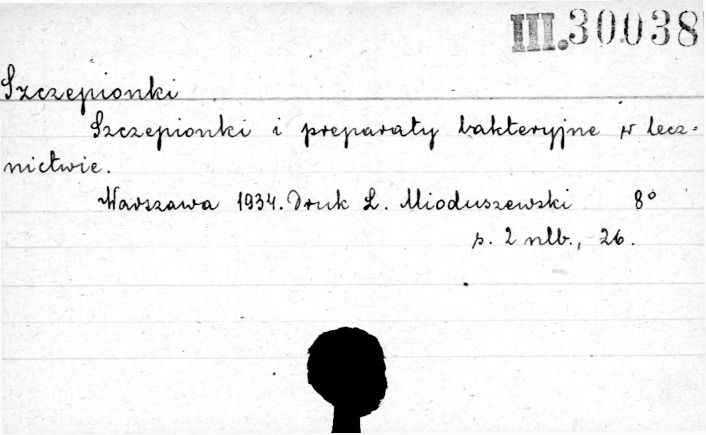 III.30038
Szczepionki
Szczepionki i preparaty bakteryjne w lecz=
nictwie.
Warszawa 1934. Druk L. Mioduszewski 8°
s. 2 nlb., 26.